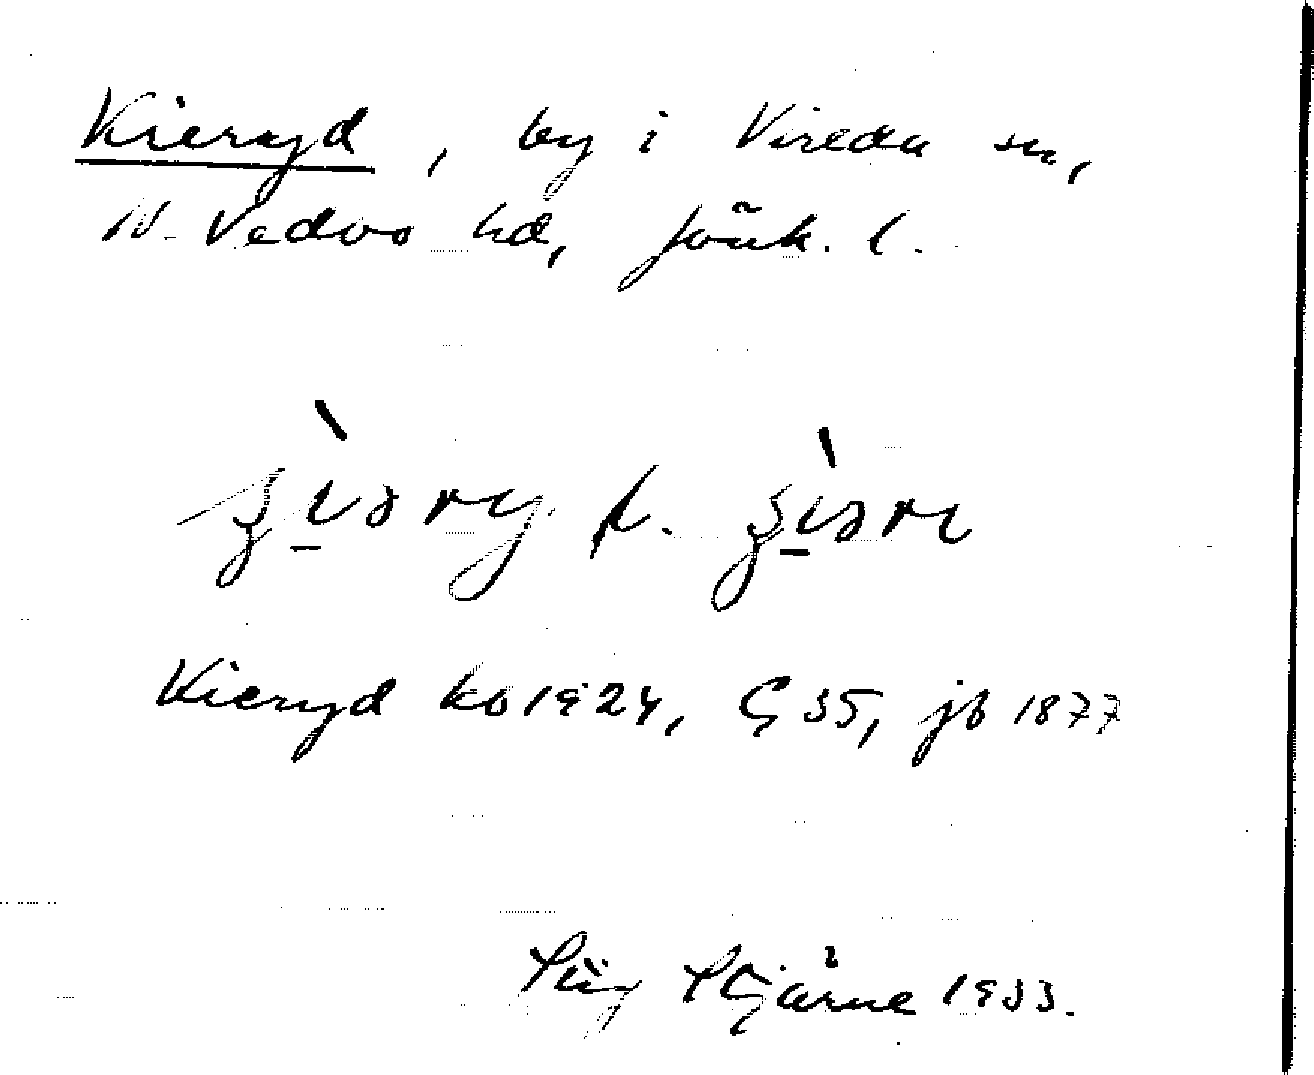 Kieryd, by i Vireda sn,
N. Vedbo hd, Jönk. l.
Kieryd kb 1924, GS5, jb 1877
Stig Stjärne 1933.